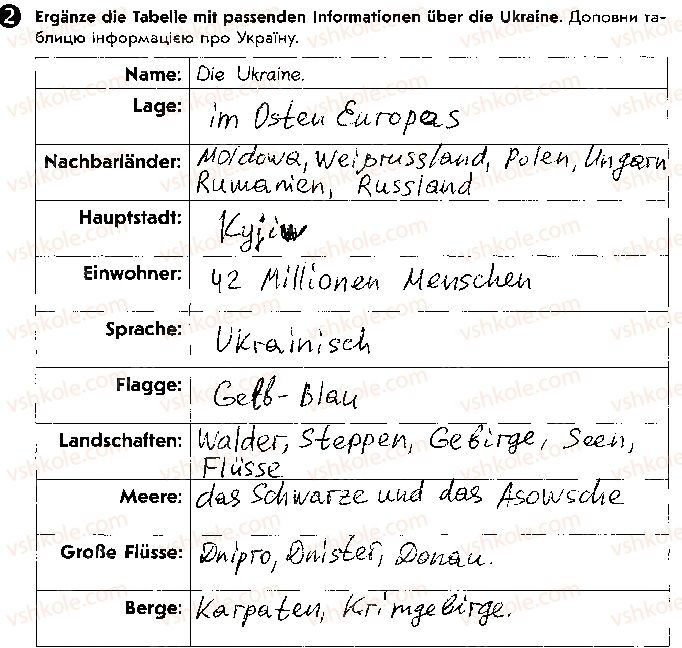 2 Ergänze die Tabelle mit passenden Informationen über die Ukraine. Доповни та-
блицю інформацією про Україну.
Name: Die Ukraine.
Lage: im Osten Europas
Nachbarländer: Moldowa, Weißrussland, Polen, Ungarn
Rumanien, Russland
Hauptstadt: Kyjiw
Einwohner: 42 Millionen Menschen
Sprache: Ukrainisch
Flagge: Gelb-Blau
Landschaften: Walder, Steppen, Gebirge, Seen,
Flüsse
Meere: das Schwarze und das Asowsche
Große Flüsse: Dnipro, Dnister, Donau.
Berge: Karpaten, Krimgebirge.
vshkole.com